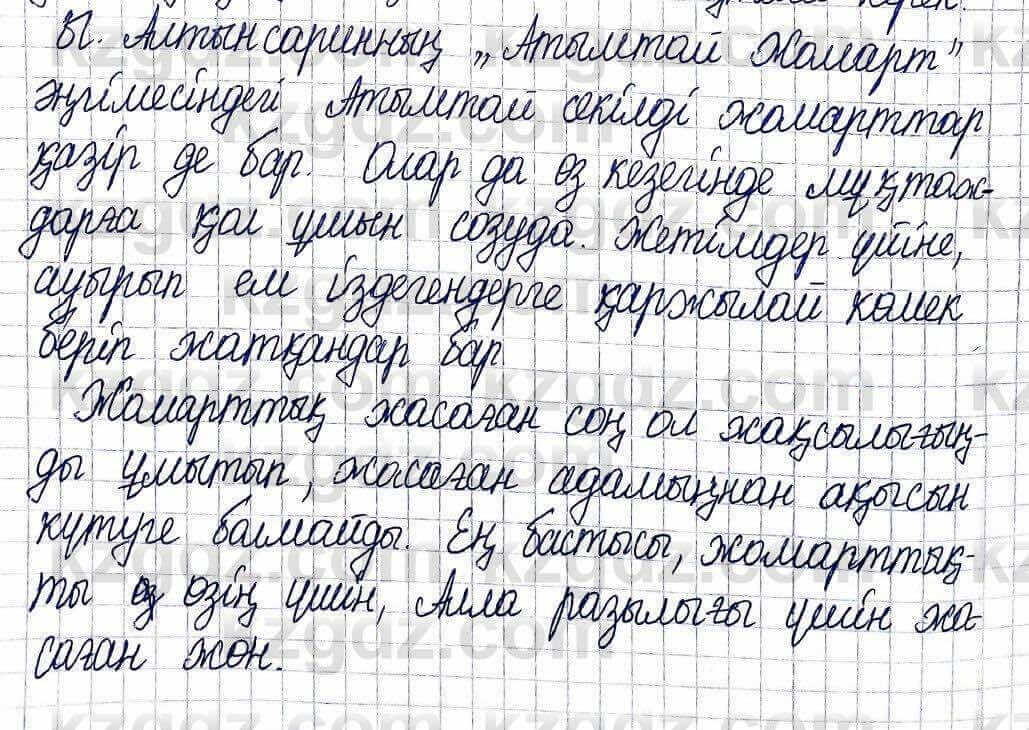 керек.
Ы. Алтынсаринның „Атымтай Жомарт”
әңгімесіндегі Атымтай секілді жомарттар
қазір де бар. Олар да өз кезегінде мұқтаж-
дарға қол ұшын созуда. Жетімдер үйіне,
ауырып ем іздегендерге қаржылай көмек
беріп жатқандар бар
Жомарттық жасаған соң ол жақсылығың-
ды ұмытып, жасаған адамыңнан ақысын
күтуге болмайды. Ең бастысы, жомарттық-
ты өз өзің үшін, Алла разылығы үшін жа-
саған жөн.